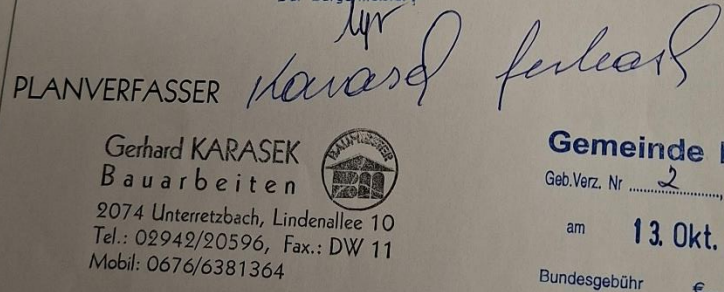 PLANVERFASSER Karasek Gerhard
Gerhard KARASEK
Bauarbeiten
BAUMEISTER
2074 Unterretzbach, Lindenallee 10
Tel.: 02942/20596, Fax.: DW 11
Mobil: 0676/6381364
Gemeinde
Geb.Verz. Nr 2
am 13. Okt.
Bundesgebühr €